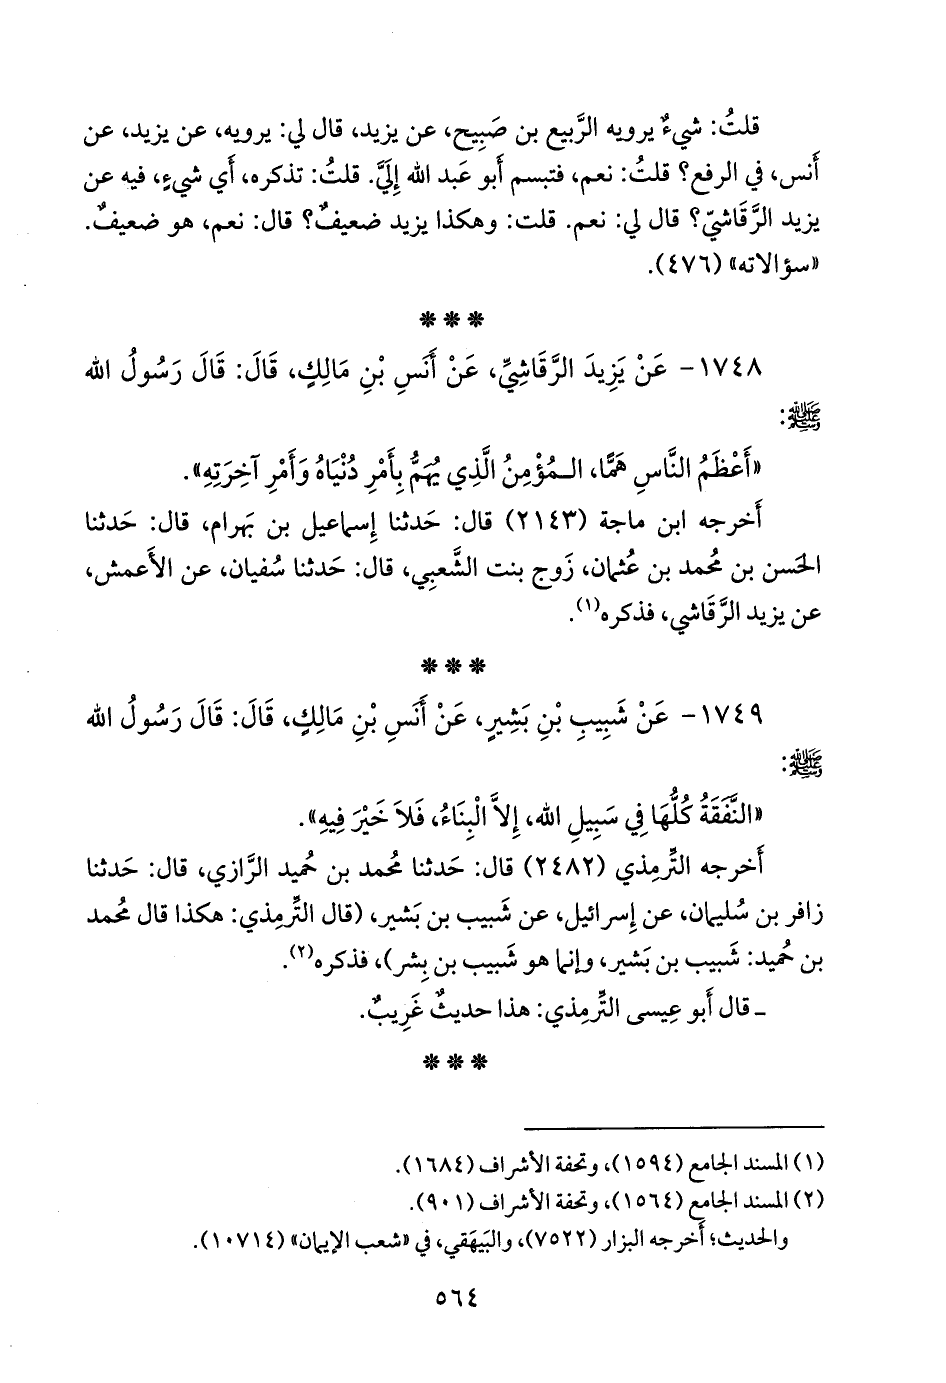 قلتُ: شيءٌ يرويه الرَّبيع بن صَبِيح، عن يزيد، قال لي: يرويه، عن يزيد، عن
أَنس، في الرفع؟ قلتُ: نعم، فتبسم أَبو عبد الله إِليَّ. قلتُ: تذكره، أَي شيءٍ، فيه عن
يزيد الرَّقَاشيّ؟ قال لي: نعم. قلت: وهكذا يزيد ضعيفٌ؟ قال: نعم، هو ضعيفٌ.
«سؤالاته» (٤٧٦).
* * *
١٧٤٨- عَنْ يَزِيدَ الرَّقَاشِيِّ، عَنْ أَنَسِ بْنِ مَالِكٍ، قَالَ: قَالَ رَسُولُ الله
ﷺ:
«أَعْظَمُ النَّاسِ هَمًّا، الـمُؤْمِنُ الَّذِي يُهَمُّ بِأَمْرِ دُنْيَاهُ وَأَمْرِ آخِرَتِهِ».
أَخرجه ابن ماجة (٢١٤٣) قال: حَدثنا إِسماعيل بن بَهرام، قال: حَدثنا
الحَسن بن مُحمد بن عُثمان، زَوج بنت الشَّعبي، قال: حَدثنا سُفيان، عن الأَعمش،
عن يزيد الرَّقَاشي، فذكره(١).
* * *
١٧٤٩- عَنْ شَبِيبِ بْنِ بَشِيرٍ، عَنْ أَنَسِ بْنِ مَالِكٍ، قَالَ: قَالَ رَسُولُ الله
ﷺ:
«النَّفَقَةُ كُلُّهَا فِي سَبِيلِ الله، إِلاَّ الْبِنَاءُ، فَلاَ خَيْرَ فِيهِ».
أَخرجه التِّرمِذي (٢٤٨٢) قال: حَدثنا مُحمد بن حُميد الرَّازي، قال: حَدثنا
زافر بن سُليمان، عن إِسرائيل، عن شَبيب بن بَشير، (قال التِّرمِذي: هكذا قال مُحمد
بن حُميد: شَبيب بن بَشير، وإنما هو شَبيب بن بِشر)، فذكره(٢).
ـ قال أَبو عِيسى التِّرمِذي: هذا حديثٌ غَرِيبٌ.
* * *
(١) المسند الجامع (١٥٩٤)، وتحفة الأشراف (١٦٨٤).
(٢) المسند الجامع (١٥٦٤)، وتحفة الأشراف (٩٠١).
والحديث؛ أَخرجه البزار (٧٥٢٢)، والبَيهَقي، في «شعب الإيمان» (١٠٧١٤).
٥٦٤